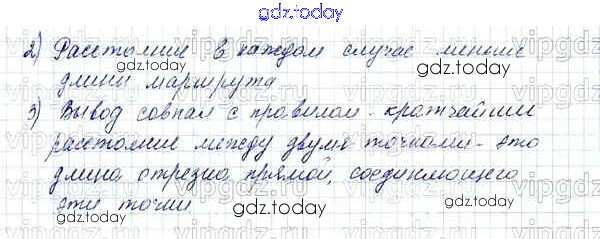 gdz.today
2) Расстояние в каждом случае меньше
длины маршрута
gdz.today gdz.today
3) Вывод совпал с правилом - кратчайшие
расстояние между двумя точками - это
gdz.today gdz.today
длина отрезка прямой, соединяющего
эти точки
gdz.today
gdz.today